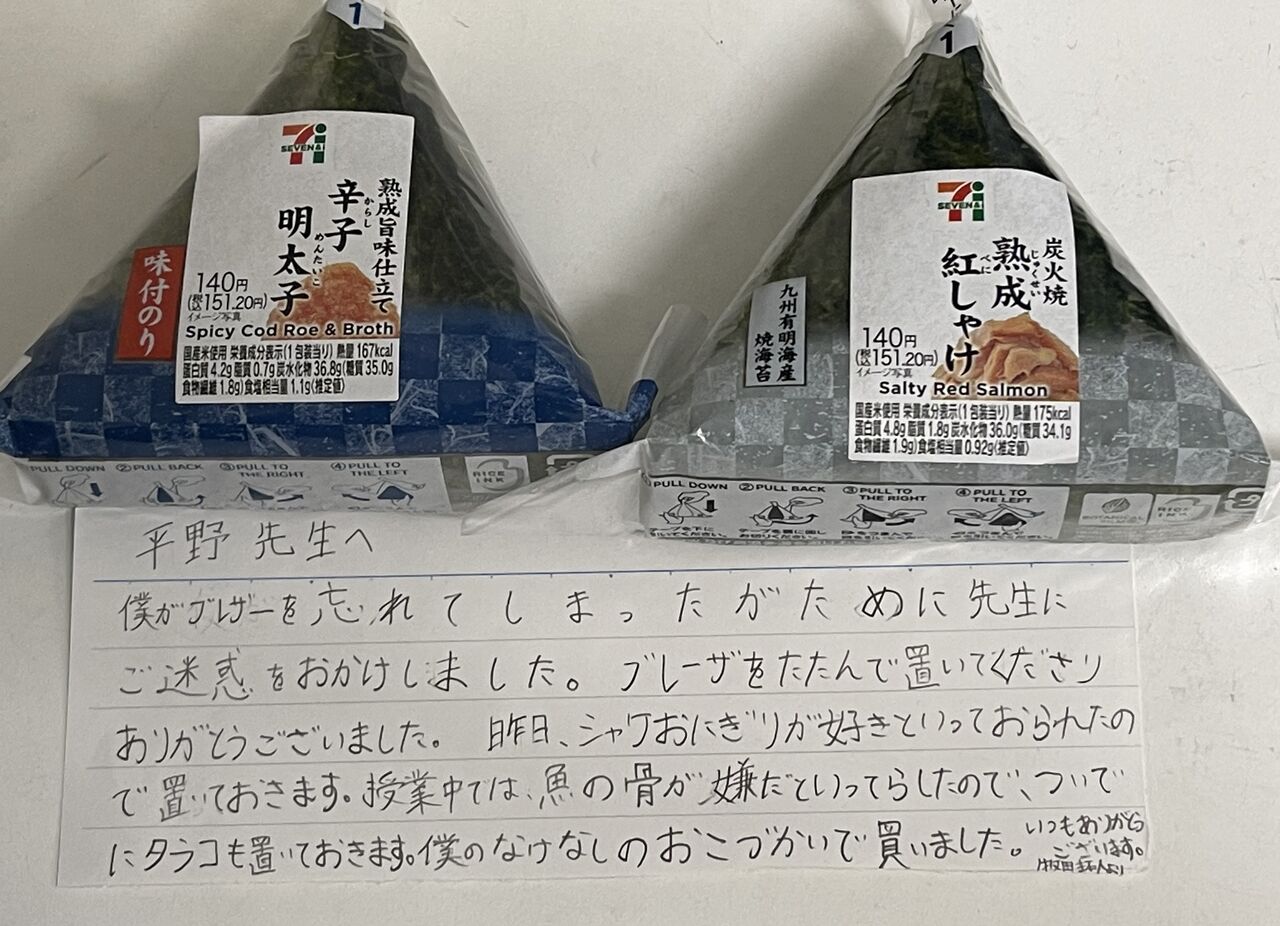 1
SEVEN&i
熟成旨味仕立て
辛子明太子
からし
めんたいこ
味付のり
140円
(税込151.20円)
イメージ写真
Spicy Cod Roe & Broth
国産米使用 栄養成分表示(1包装当り) 熱量 167kcal
蛋白質 4.2g 脂質 0.7g 炭水化物 36.8g(糖質 35.0g
食物繊維 1.8g)食塩相当量 1.1g(推定値)
PULL DOWN ②PULL BACK ③PULL TO THE RIGHT ④PULL TO THE LEFT
RICE INK
1
SEVEN&i
炭火焼
熟成
じゅくせい
紅しゃけ
べに
九州有明海産
焼海苔
140円
(税込151.20円)
イメージ写真
Salty Red Salmon
国産米使用 栄養成分表示(1包装当り) 熱量 175kcal
蛋白質 4.8g 脂質 1.8g 炭水化物 36.0g(糖質 34.1g
食物繊維 1.9g)食塩相当量 0.92g(推定値)
①PULL DOWN ②PULL BACK ③PULL TO THE RIGHT ④PULL TO THE LEFT
RICE INK
平野先生へ
僕がブレザーを忘れてしまったがために先生に
ご迷惑をおかけしました。ブレーザをたたんで置いてくださり
ありがとうございました。昨日、シャケおにぎりが好きといっておられたの
で置いておきます。授業中では、魚の骨が嫌だといってらしたので、ついで
にタラコも置いておきます。僕のなけなしのおこづかいで買いました。
いつもありがとう
ございます。